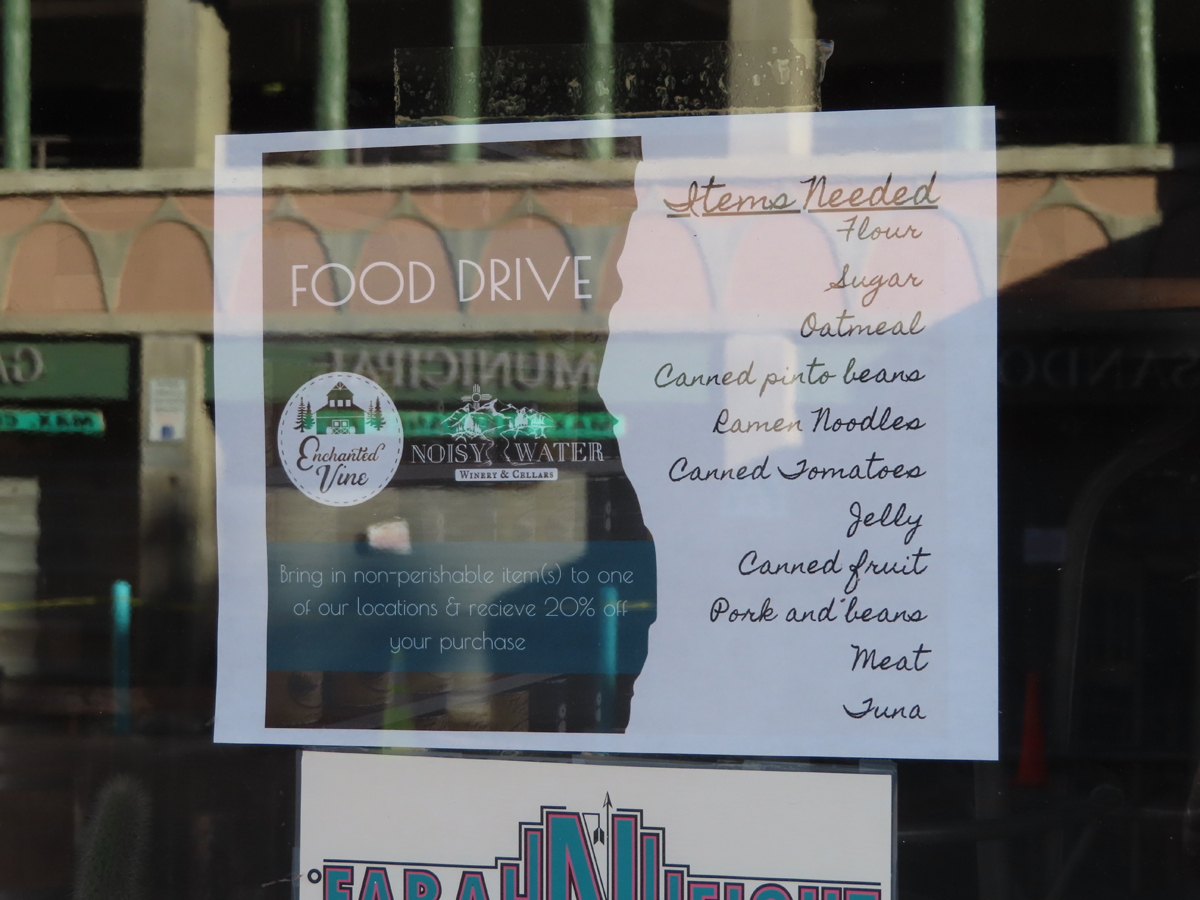 FOOD DRIVE
Enchanted
Vine
NOISY WATER
WINERY & CELLARS
Bring in non-perishable item(s) to one
of our locations & recieve 20% off
your purchase
Items Needed
Flour
Sugar
Oatmeal
Canned pinto beans
Ramen Noodles
Canned Tomatoes
Jelly
Canned fruit
Pork and beans
Meat
Tuna
MUNICIPAL